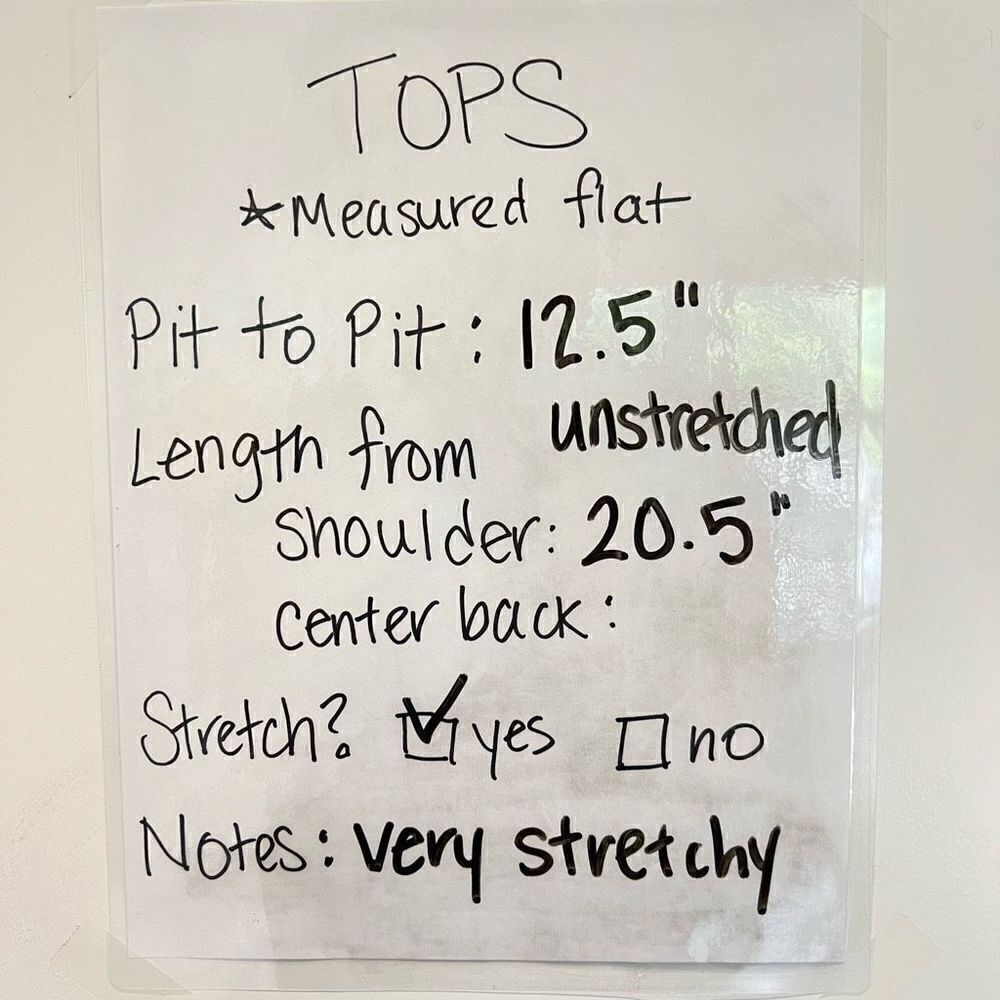 TOPS
*Measured flat
Pit to Pit: 12.5"
unstretched
Length from
shoulder: 20.5"
center back:
Stretch? ☑ yes ☐ no
Notes: very stretchy